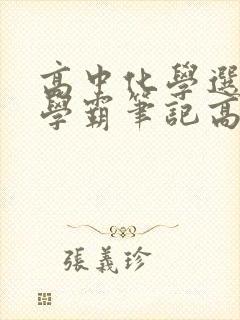 高中化學選
學霸筆記高
張義珍